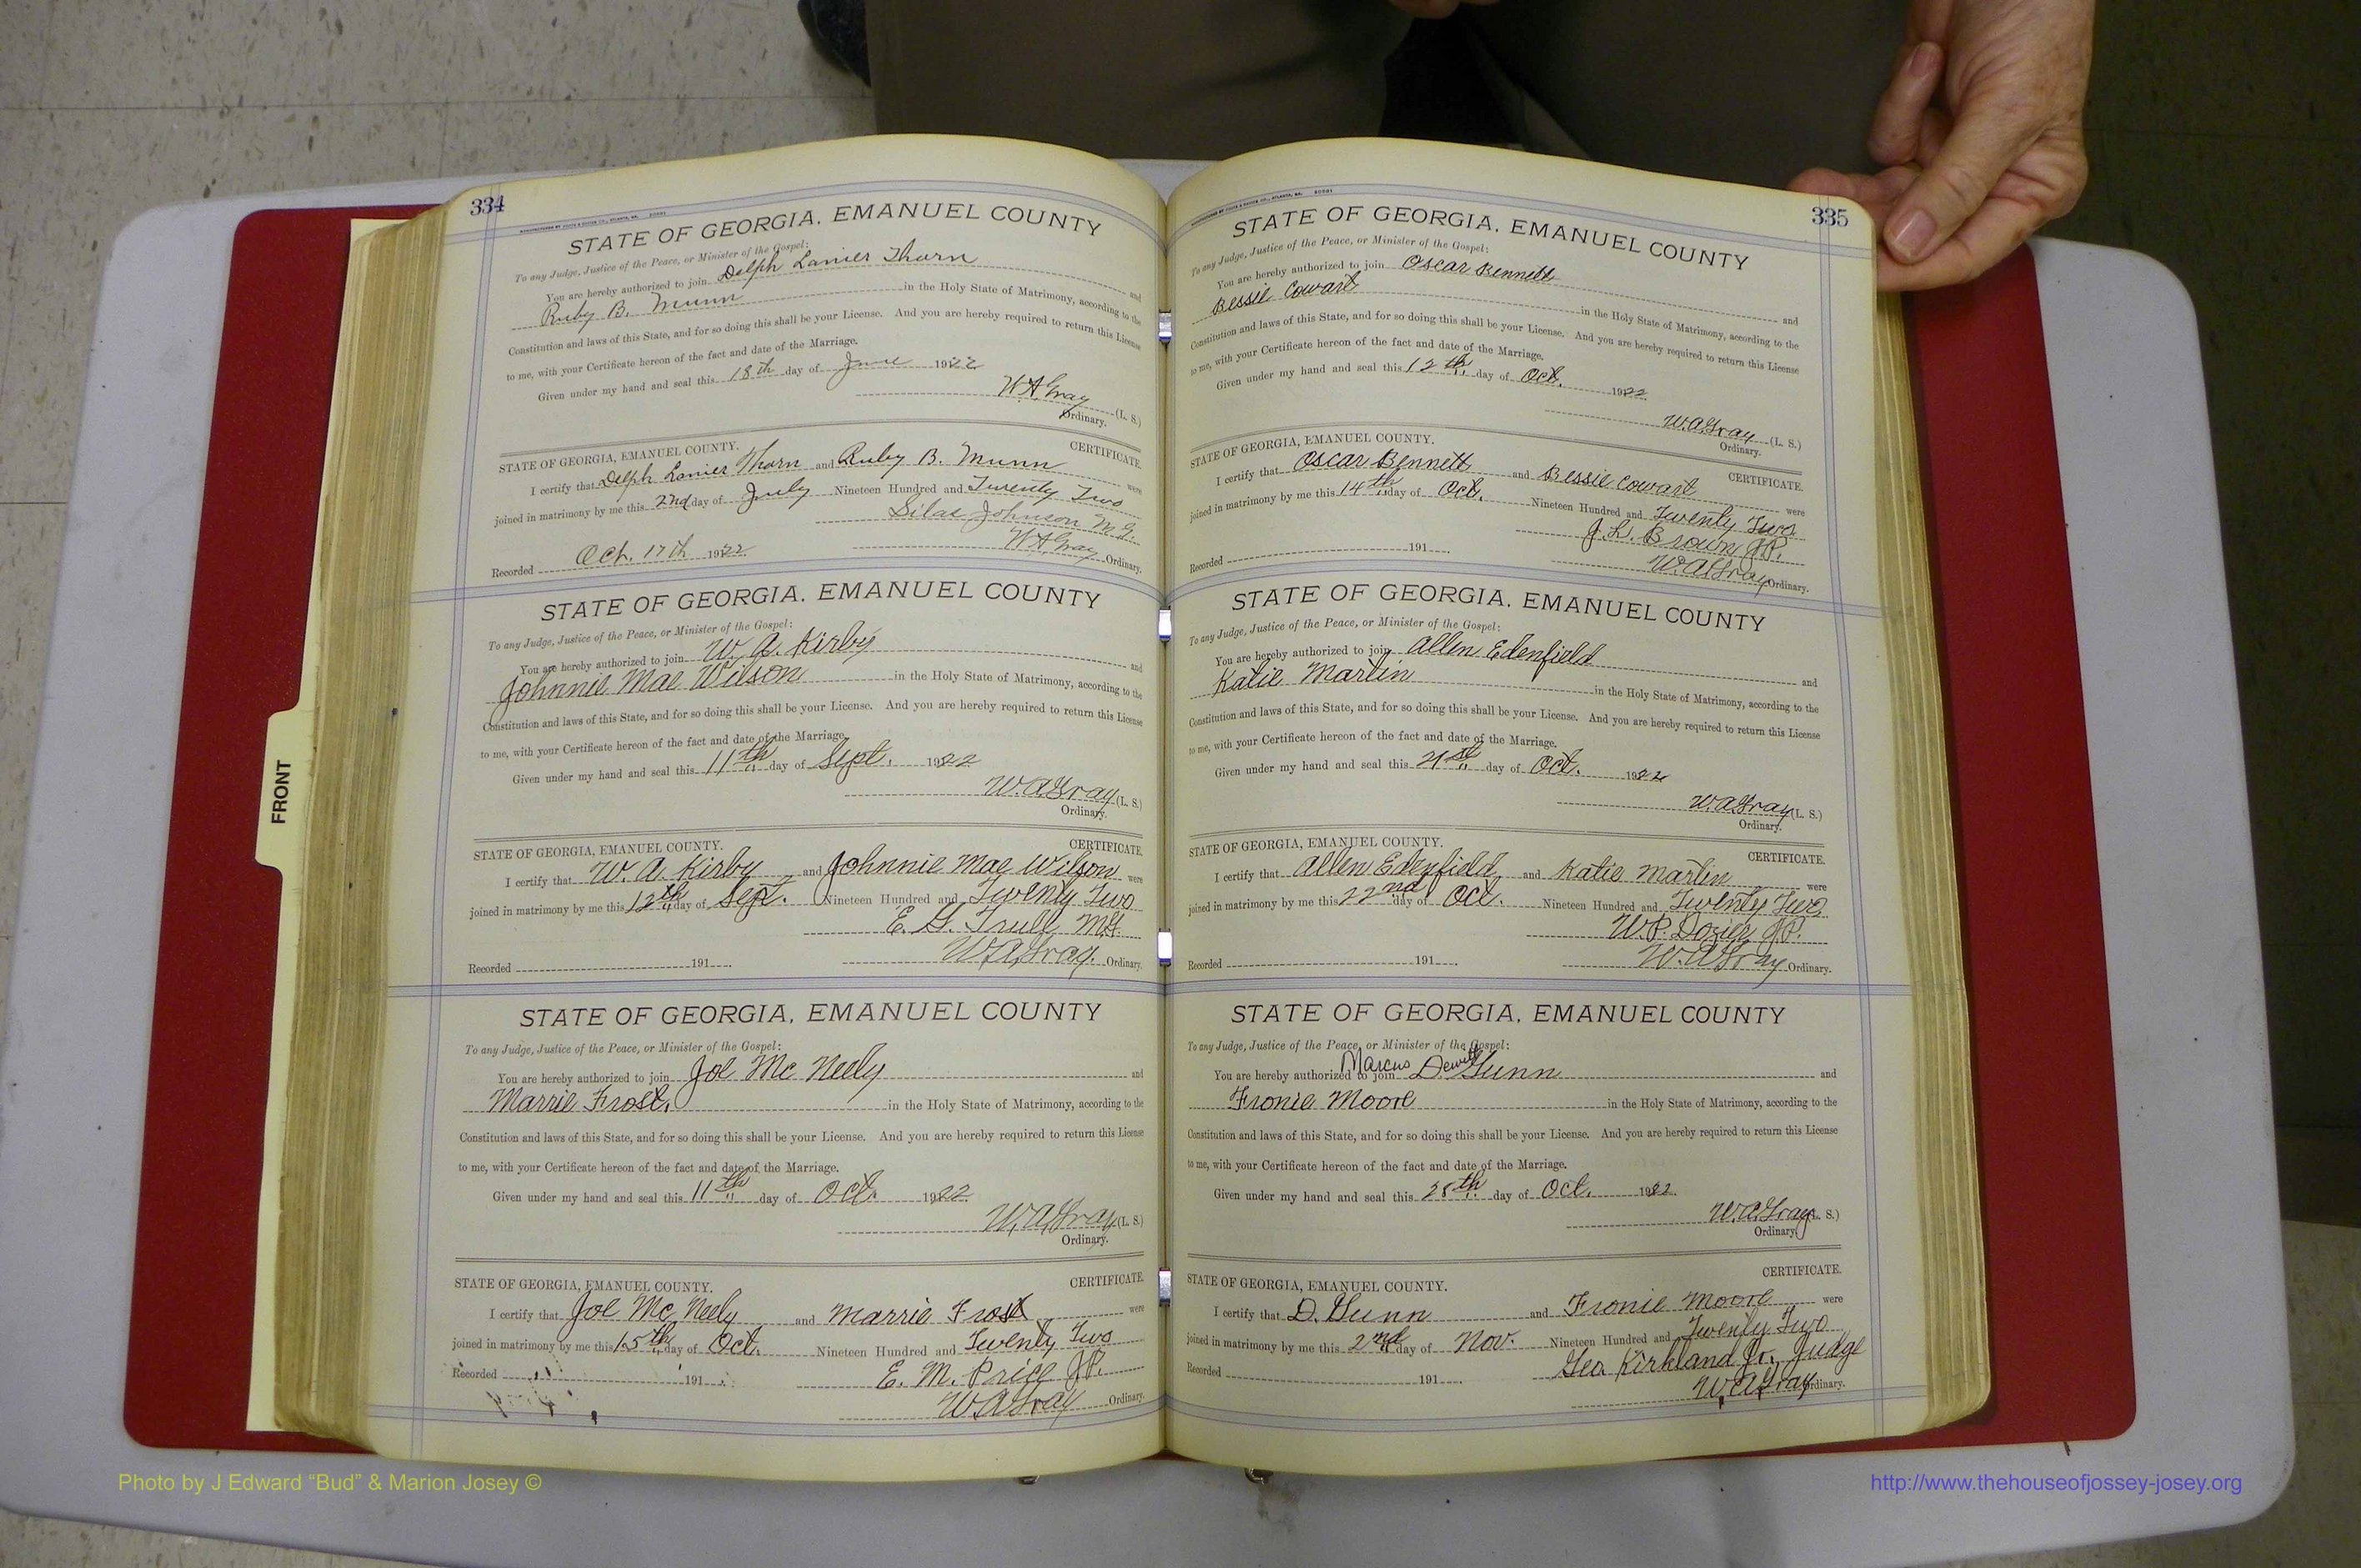 334
STATE OF GEORGIA, EMANUEL COUNTY
To any Judge, Justice of the Peace, or Minister of the Gospel:
You are hereby authorized to join Delph Lanier Thorn and
Ruby B. Munn in the Holy State of Matrimony, according to the
Constitution and laws of this State, and for so doing this shall be your License. And you are hereby required to return this License
to me, with your Certificate hereon of the fact and date of the Marriage.
Given under my hand and seal this 18th day of June 1922
W A Gray (L. S.)
Ordinary.
STATE OF GEORGIA, EMANUEL COUNTY. CERTIFICATE.
I certify that Delph Lanier Thorn and Ruby B. Munn were
joined in matrimony by me this 2nd day of July Nineteen Hundred and Twenty Two
Silas Johnson M.G.
Recorded Oct. 17th 1922 W A Gray Ordinary.
STATE OF GEORGIA, EMANUEL COUNTY
To any Judge, Justice of the Peace, or Minister of the Gospel:
You are hereby authorized to join W. A. Kirby and
Johnnie Mae Wilson in the Holy State of Matrimony, according to the
Constitution and laws of this State, and for so doing this shall be your License. And you are hereby required to return this License
to me, with your Certificate hereon of the fact and date of the Marriage.
Given under my hand and seal this 11th day of Sept. 1922
W. A Gray (L. S.)
Ordinary.
STATE OF GEORGIA, EMANUEL COUNTY. CERTIFICATE.
I certify that W. A. Kirby and Johnnie Mae Wilson were
joined in matrimony by me this 12th day of Sept. Nineteen Hundred and Twenty Two
E. G. Trull M.G.
Recorded 191 W. A. Gray. Ordinary.
STATE OF GEORGIA, EMANUEL COUNTY
To any Judge, Justice of the Peace, or Minister of the Gospel:
You are hereby authorized to join Joe Mc Neely and
Marrie Frost. in the Holy State of Matrimony, according to the
Constitution and laws of this State, and for so doing this shall be your License. And you are hereby required to return this License
to me, with your Certificate hereon of the fact and date of the Marriage.
Given under my hand and seal this 11th day of Oct. 1922
W. A. Gray (L. S.)
Ordinary.
STATE OF GEORGIA, EMANUEL COUNTY. CERTIFICATE.
I certify that Joe Mc Neely and Marrie Frost were
joined in matrimony by me this 15th day of Oct. Nineteen Hundred and Twenty Two
E. M. Price J.P.
Recorded 191 W. A Gray Ordinary.
335
STATE OF GEORGIA, EMANUEL COUNTY
To any Judge, Justice of the Peace, or Minister of the Gospel:
You are hereby authorized to join Oscar Bennett and
Bessie Cowart in the Holy State of Matrimony, according to the
Constitution and laws of this State, and for so doing this shall be your License. And you are hereby required to return this License
to me, with your Certificate hereon of the fact and date of the Marriage.
Given under my hand and seal this 12th. day of Oct. 1922
W. A Gray (L. S.)
Ordinary.
STATE OF GEORGIA, EMANUEL COUNTY. CERTIFICATE.
I certify that Oscar Bennett and Bessie Cowart were
joined in matrimony by me this 14th day of Oct. Nineteen Hundred and Twenty Two
J. L. Brown J.P.
Recorded 191 W. A Gray Ordinary.
STATE OF GEORGIA, EMANUEL COUNTY
To any Judge, Justice of the Peace, or Minister of the Gospel:
You are hereby authorized to join Allen Edenfield and
Katie Martin in the Holy State of Matrimony, according to the
Constitution and laws of this State, and for so doing this shall be your License. And you are hereby required to return this License
to me, with your Certificate hereon of the fact and date of the Marriage.
Given under my hand and seal this 21st day of Oct. 1922
W. A Gray (L. S.)
Ordinary.
STATE OF GEORGIA, EMANUEL COUNTY. CERTIFICATE.
I certify that Allen Edenfield and Katie Martin were
joined in matrimony by me this 22nd day of Oct. Nineteen Hundred and Twenty Two
W. P. Dozier J.P.
Recorded 191 W. A Gray Ordinary.
STATE OF GEORGIA, EMANUEL COUNTY
To any Judge, Justice of the Peace, or Minister of the Gospel:
Marcus Dewitt
You are hereby authorized to join D. Gunn and
Fronie Moore in the Holy State of Matrimony, according to the
Constitution and laws of this State, and for so doing this shall be your License. And you are hereby required to return this License
to me, with your Certificate hereon of the fact and date of the Marriage.
Given under my hand and seal this 28th day of Oct. 1922.
W. A. Gray (L. S.)
Ordinary.
STATE OF GEORGIA, EMANUEL COUNTY. CERTIFICATE.
I certify that D. Gunn and Fronie Moore were
joined in matrimony by me this 2nd day of Nov. Nineteen Hundred and Twenty Two
Geo. Kirkland Jr. Judge
Recorded 191 W. A Gray Ordinary.
FRONT
Photo by J Edward “Bud” & Marion Josey ©
http://www.thehouseofjossey-josey.org